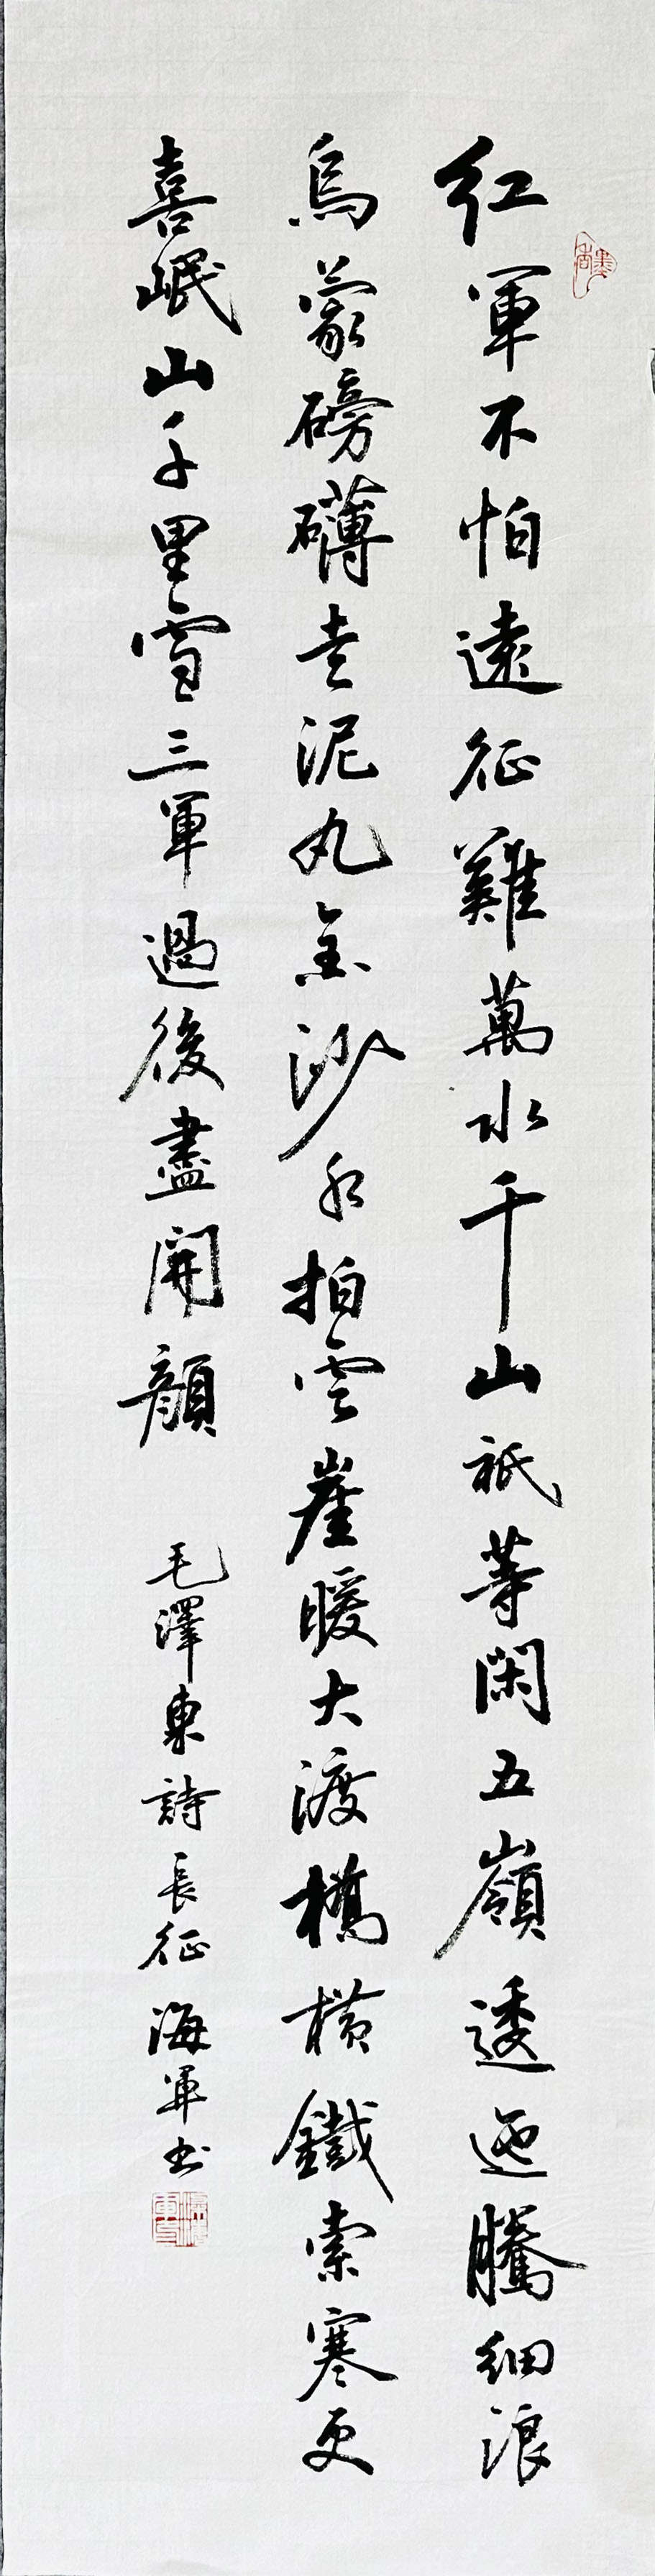 红軍不怕遠征難萬水千山衹等閑五嶺逶迤騰細浪
烏蒙磅礴走泥丸金沙水拍雲崖暖大渡橋横鐵索寒更
喜岷山千里雪三軍過後盡開顔
毛澤東詩長征海軍书